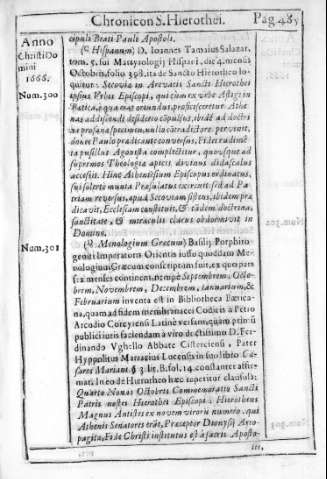 Chronicon S. Hierothei. Pag. 485
Anno
Christi Do
mini
1666.
Num. 300
Num. 301
cipuli Beati Pauli Apostoli.
(§ Hispanum) D. Ioannes Tamaius Salazar,
tom. 5. sui Martyrologij Hispani, die 4. mensis
Octobris, folio 398. ita de Sancto Hierotheo lo
quitur: Secoviæ in Arevatis Sancti Hierothei
ipsius Vrbis Episcopi, qui cum ex urbe Astigi in
Bætica,
næ addiscendi desiderio compulsus, ibidē ad doctri
næ profana specimen,
donec Paulo prædicante conversus, Fidei rudimē
ta pusillus Agonista complectitur, quousque ad
supremos Theologiæ apices divinus didascalus
accessit. Hinc Atheniensium Episcopus ordinatus,
sui solerti munia Præsulatus exercuit sed ad Pa
triam reversus, apud Secoviam sistens, ibidem præ
dicavit, Ecclesiam constituit, & tādem doctrina,
sanctitate, & miraculis clarus obdormivit in
Domino.
(§ Menologium Græcum) Basilij Porphiro
geniti Imperatoris Orientis iussu quoddam Me
nologium Græcum conscriptum fuit, ex quo pars
sex menses continens, nempè Septembrem, Octo
brem, Novembrem, Decembrem, Ianuarium, &
Februarium inventa est in Bibliotheca
na, quam ad fidem membranacei Codicis à Petro
Arcudio Corcyrensi Latinè versam, quam primū
publici iuris faciendam à viro doctissimo D. Fer-
dinando Vghello Abbate Cisterciensi, Pater
Hyppolitus Marracius Lucensis in suo libro Cæ
sares Mariani. § 3. lit. B. fol. 14. constanter affir-
mat. In eo de Hierotheo hæc reperitur clausula:
Quarto Nonas Octobris Commemoratio Sancti
Patris nostri Hierothei Episcopi: Hierotheus
Magnus Antistes ex novem virorū numero, qui
Athenis Senatores erāt, Præceptor Dionysij Areo-
pagitæ, Fide Christi institutus est à sacris Aposto-
lis,